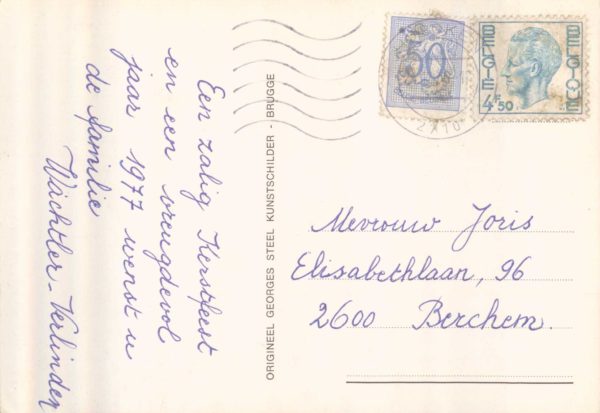 Een zalig Kerstfeest
en een vreugdevol
jaar 1977 wenst u
de familie
Wächtler-Verlinden
ORIGINEEL GEORGES STEEL KUNSTSCHILDER - BRUGGE
50
BELGIE
BELGIQUE
4F50
2710
Mevrouw Joris
Elisabethlaan, 96
2600 Berchem.